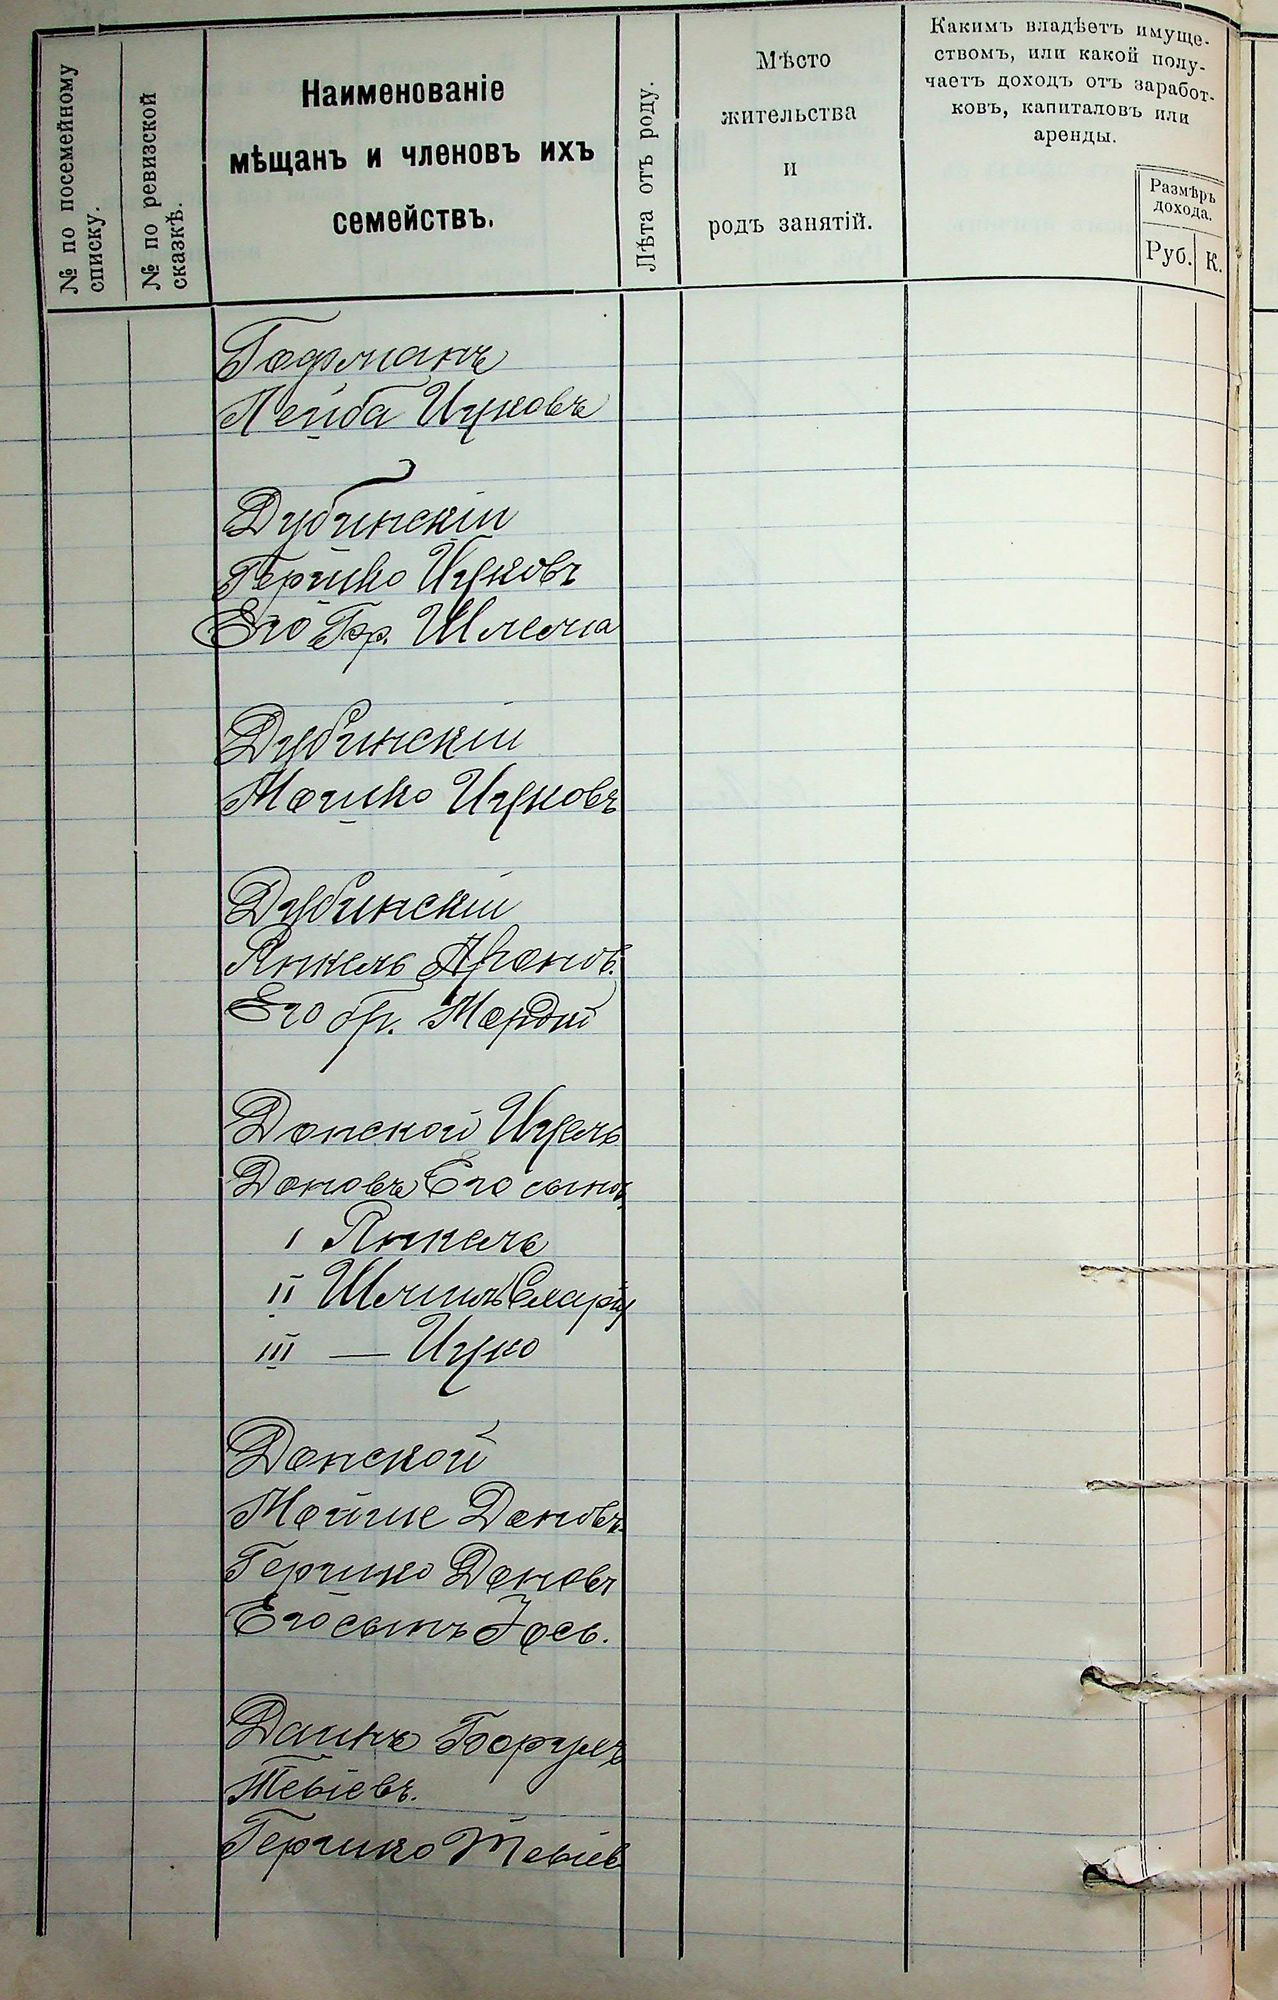 № по посемейному
списку.
№ по ревизской
сказкѣ.
Наименованіе
мѣщанъ и членовъ ихъ
семействъ.
Лѣта отъ роду.
Мѣсто
жительства
и
родъ занятій.
Какимъ владѣетъ имуще-
ствомъ, или какой полу-
чаетъ доходъ отъ заработ-
ковъ, капиталовъ или
аренды.
Размѣръ
дохода.
Руб.
К.
Гофманъ
Лейба Ицковъ
Дубинскій
Гершко Ицковъ
Его бр. Шлема
Дубинскій
Мошко Ицковъ
Дубинскій
Янкель Ароновъ
Его бр. Мордко
Донской Ицель
Доновъ Его сынов
I Янкель
II Шлиомъ
III — Ицко
Донской
Мойше Доновъ
Гершко Доновъ
Его сынъ Іось.
Даинъ Борухъ
Тевіевъ.
Гершко Тевіев